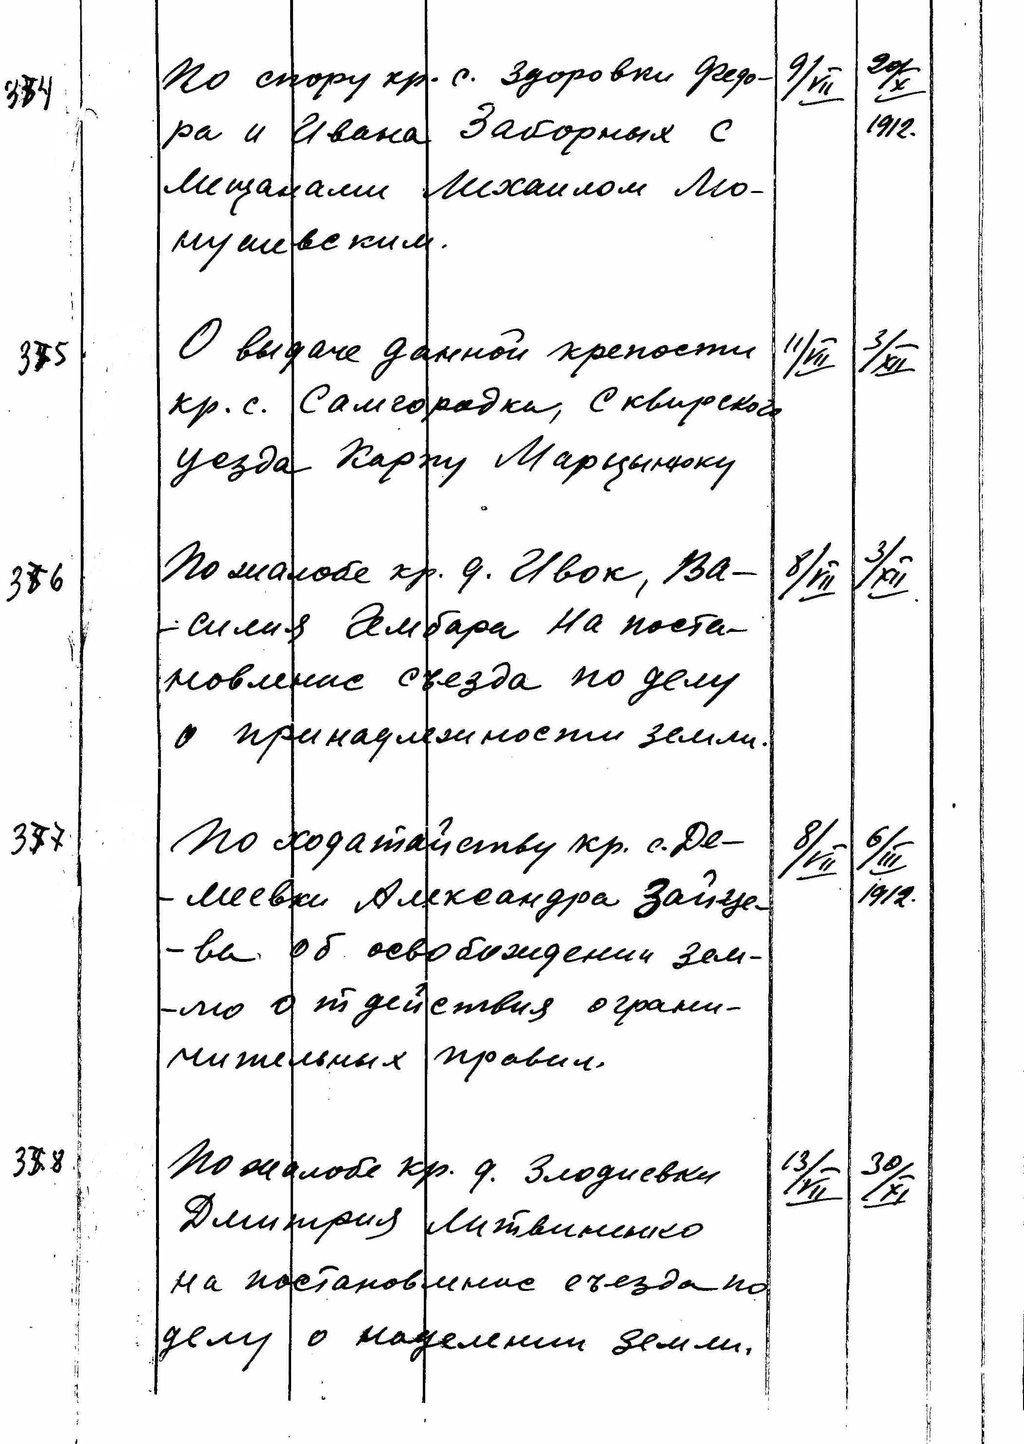 374 По спору кр. с. Здоровки Федо- 9/VII 20/X
ра и Ивана Заборных с 1912.
мещанами Михаилом Лю-
кр. с. Самгородка, Сквирского
375 О выдаче данной крепости 11/VII 3/XII
уезда Карпу Марцынюку
376 По жалобе кр. д. Ивок, Ва- 8/VII 3/XII
-силия Гембара на поста-
новление съезда по делу
о принадлежности земли.
377 По ходатайству кр. с. Де- 8/VII 6/III
-меевки Александра Зайце- 1912.
-ва об освобождении зем-
-лю от действия ограни-
чительных правил.
378 По жалобе кр. д. Злодиевки 13/VII 30/XI
Дмитрия Литвиненко
на постановление съезда по
делу о наделении земли.